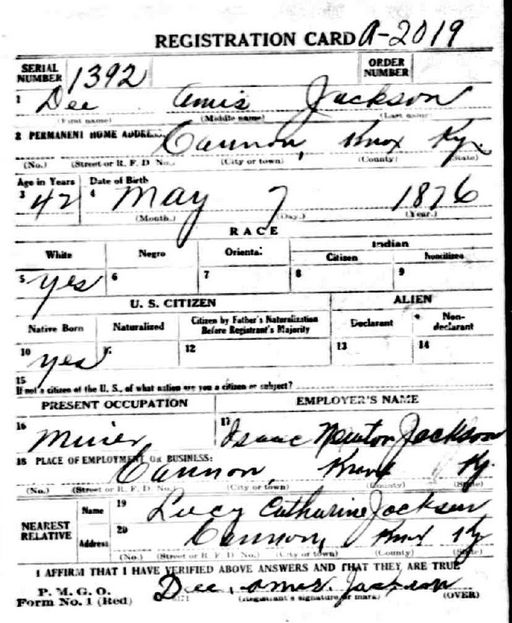 REGISTRATION CARD A-2019
SERIAL NUMBER 1392 ORDER NUMBER
1 Dee Amis Jackson
(First name) (Middle name) (Last name)
2 PERMANENT HOME ADDRESS: Cannon, Knox Ky
(No.) (Street or R. F. D. No.) (City or town) (County) (State)
Age in Years Date of Birth
3 42 4 May 7 1876
(Month.) (Day.) (Year.)
RACE
White Negro Oriental Indian
Citizen Noncitizen
5 yes 6 7 8 9
U. S. CITIZEN ALIEN
Native Born Naturalized Citizen by Father's Naturalization Before Registrant's Majority Declarant Non-declarant
10 yes 12 13 14
15
If not a citizen of the U. S., of what nation are you a citizen or subject?
PRESENT OCCUPATION EMPLOYER'S NAME
16 Miner 17 Isaac Newton Jackson
18 PLACE OF EMPLOYMENT OR BUSINESS:
Cannon, Knox Ky.
(No.) (Street or R. F. D. No.) (City or town) (County) (State)
NEAREST RELATIVE Name 19 Lucy Catharine Jackson
Address 20 Cannon, Knox Ky
(No.) (Street or R. F. D. No.) (City or town) (County) (State)
I AFFIRM THAT I HAVE VERIFIED ABOVE ANSWERS AND THAT THEY ARE TRUE
P. M. G. O.
Form No. 1 (Red) Dee Amis Jackson
(Registrant's signature or mark) (OVER)